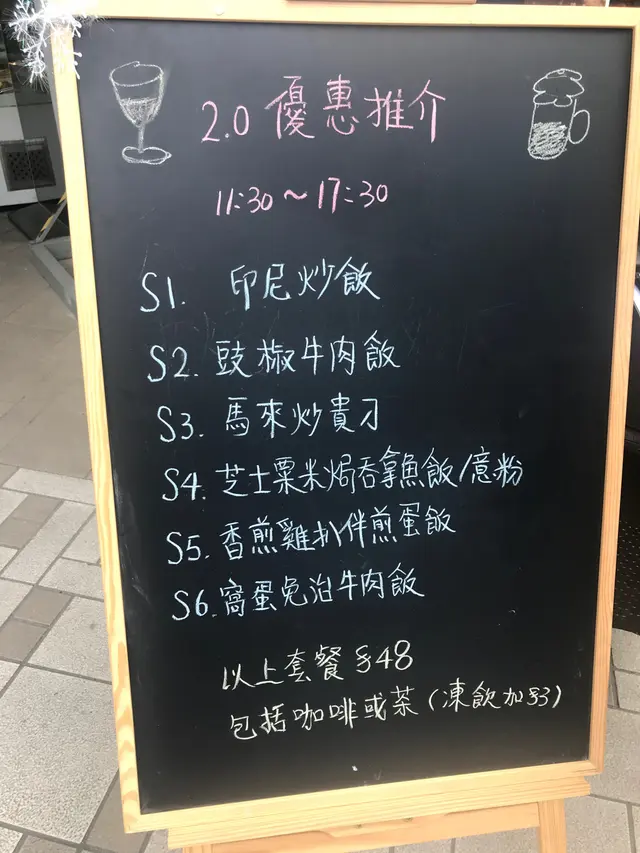 2.0 優惠推介
11:30～17:30
S1. 印尼炒飯
S2. 豉椒牛肉飯
S3. 馬來炒貴刁
S4. 芝士粟米焗吞拿魚飯/意粉
S5. 香煎雞扒伴煎蛋飯
S6. 窩蛋免治牛肉飯
以上套餐 $48
包括咖啡或茶（凍飲加$3）